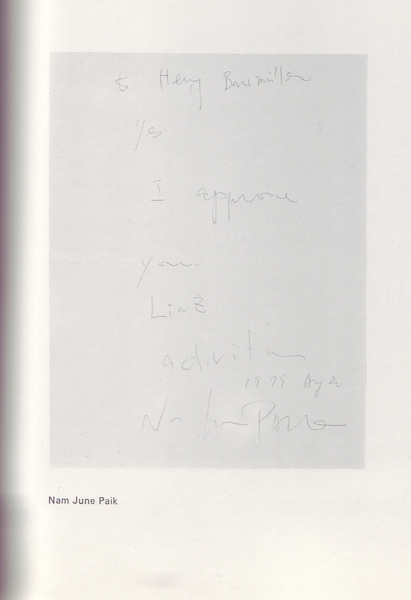 to Henry Baumüller
Yes
I approve
your
Linz
activities
1979 Aug 20
Nam June Paik
Nam June Paik